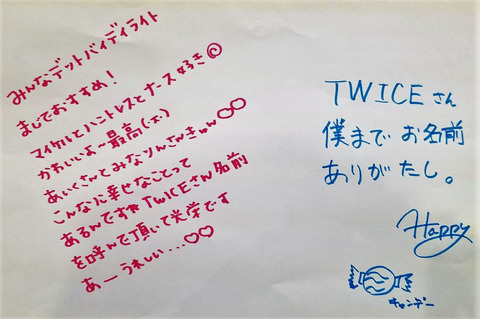 みんなデットバイディライト
まじでおすすめ！
マイケルとハントレスとナース好き☺
かわいいよ〜最高(エ)
あいくさんとみなりんさんきゅん♡♡
こんなに幸せなことって
あるんですねTWICEさん名前
を呼んで頂いて光栄です
あーうれしい…♡♡
TWICEさん
僕までお名前
ありがたし。
Happy
キャンデー